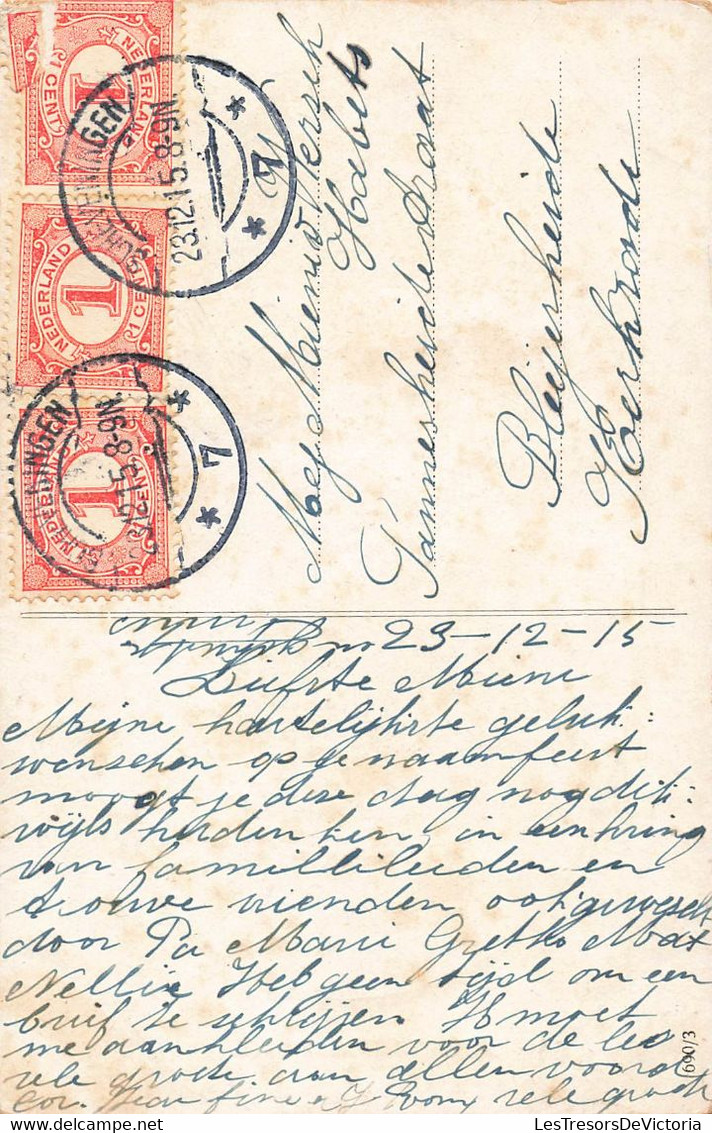 NEDERLAND
1 CENT
1
SCHEVENINGEN
23.12.15.8-9N.
* 7 *
NEDERLAND
1 CENT
1
NEDERLAND
1
* 7 *
Mej Mienie
Habets
Tannesheidestraat
Bleijerheide
Kerkrade
23-12-15
Liefste Mieni
Mijne hartelijkste geluk:
wenschen op je naamfeest
moogt je deze dag nog dik:
wijls herdenken in een kring
van famillileden en
trouwe vrienden ook gewenscht
door Pa Marii Gretha Mat
Nellie Heb geen tijd om een
brief te schrijven Ik moet
me aankleeden voor de les
vele groete aan allen vooral
vele groete
690/3
LesTresorsDeVictoria.com